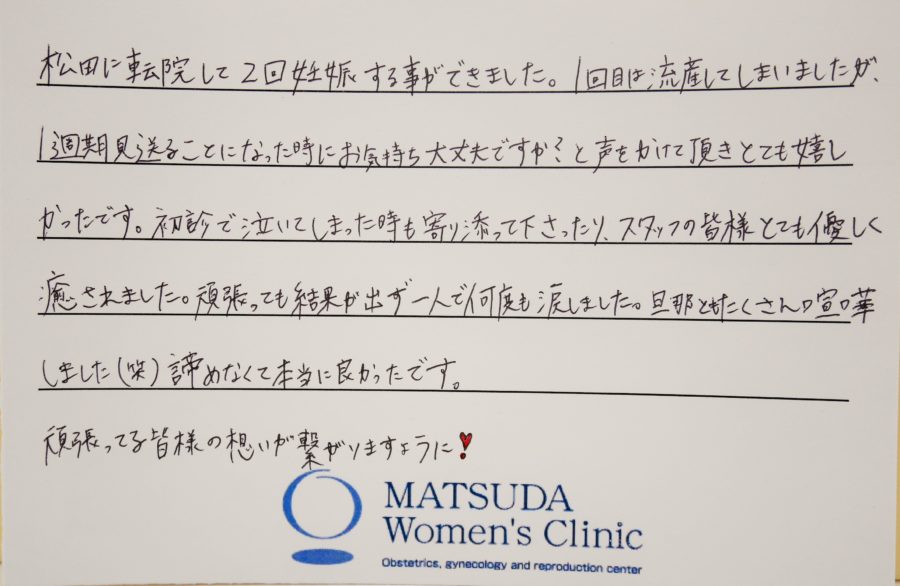 松田に転院して2回妊娠する事ができました。1回目は流産してしまいましたが、
1週期見送ることになった時にお気持ち大丈夫ですか？と声をかけて頂きとても嬉し
かったです。初診で泣いてしまった時も寄り添って下さったり、スタッフの皆様とても優しく
癒されました。頑張っても結果が出ず一人で何度も涙しました。旦那ともたくさん喧嘩
しました(笑)諦めなくて本当に良かったです。
頑張ってる皆様の想いが繋がりますように❗
MATSUDA
Women's Clinic
Obstetrics, gynecology and reproduction center